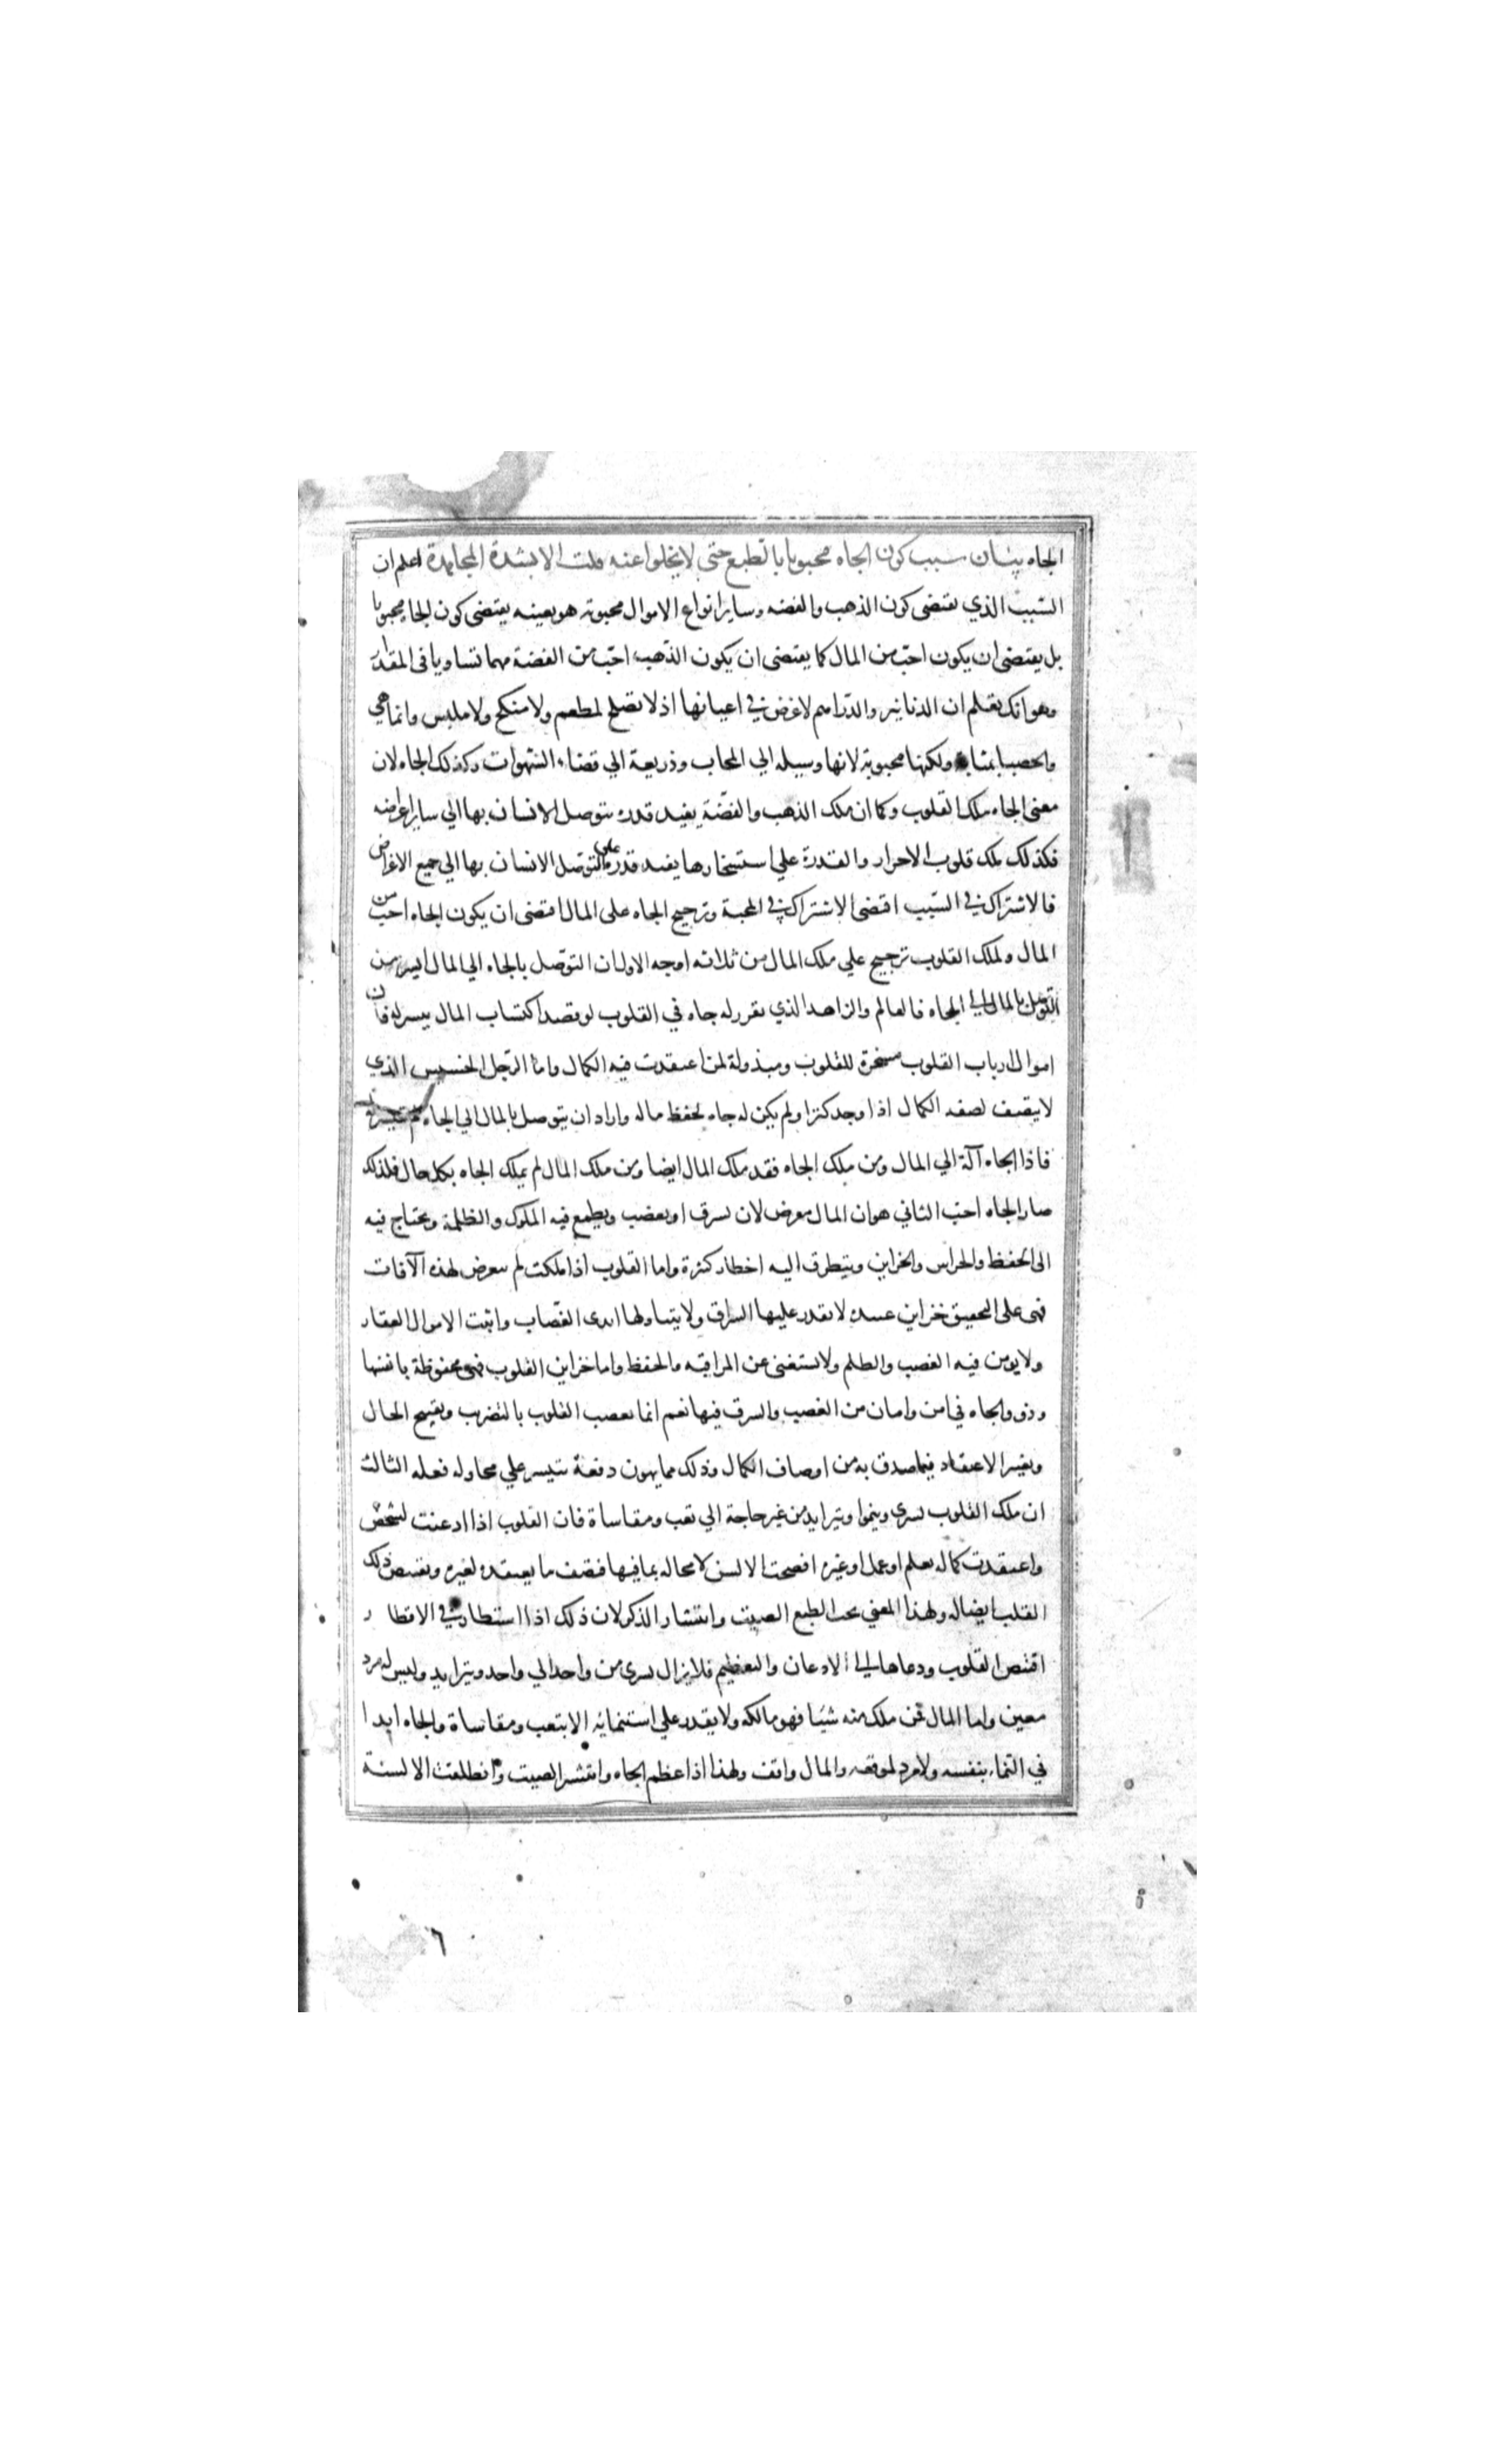 الجاه بيان سبب كون الجاه محبوبا بالطبع حتى لا يخلوا عنه قلب الا بشدة المجاهدة اعلم ان
السبب الذي يقتضى كون الذهب والفضه وساير انواع الاموال محبوبة هو بعينه يقتضى كون الجا محبوبا
بل يقتضى ان يكون احبّ من المال كما يقتضى ان يكون الذهب احبّ من الفضة مهما تساويا فى المقدار
وهو انك تعلم ان الدنانير والدراهم لا غرض في اعيانها اذ لا تصلح لمطعم ولا منكح ولا ملبس وانما هي
والحصبا بمثابة ولكنها محبوبة لانها وسيله الي المحاب وذريعة الي قضاء الشهوات وكذلك الجاه لان
معنى الجاه ملك القلوب وكما ان ملك الذهب والفضّة يفيد قدرة يتوصل الانسان بها الي ساير اغراضه
فكذلك ملك قلوب الاحرار والقدرة علي استسخارها يفيد قدرة على التوصل الانسان بها الي جميع الاغراض
فالاشتراك في السّبب اقتضى الاشتراك في المحبة وترجيح الجاه على المال اقتضى ان يكون الجاه احب من
المال ولملك القلوب ترجيح علي ملك المال من ثلاثه اوجه الاول ان التوصّل بالجاه الي المال ايسر من
التوصل بالمال الي الجاه فالعالم والزاهد الذي تقرر له جاه في القلوب لو قصد اكتساب المال تيسر له فان
اموال ارباب القلوب مسخرة للقلوب ومبذولة لمن اعتقدت فيه الكمال واما الرّجل الخسيس الذي
لا يتصف بصفه الكمال اذا وجد كنزا ولم يكن له جاه يحفظ ماله واراد ان يتوصل بالمال الي الجاه لم يتيسر له
فاذا الجاه آلة الي المال ومن ملك الجاه فقد ملك المال ايضا ومن ملك المال لم يملك الجاه بكل حال فلذلك
صار الجاه احبّ الثاني هو ان المال معرض لان يسرق او يغصب ويطمع فيه الملوك والظلمة ويحتاج فيه
الى الحفظ والحراس والخزاين ويتطرق اليه اخطار كثرة واما القلوب اذا ملكت لم تتعرض لهذه الآفات
فهى على التحقيق خزاين عتيدة لا يقدر عليها السراق ولا يتناولها ايدى الغصّاب واثبت الاموال العقار
ولا يومن فيه الغصب والظلم ولا يستغنى عن المراقبه والحفظ واما خزاين القلوب فهى محفوظة بانفسها
وذو والجاه في امن وامان من الغصب والسرق فيها نعم انما تغصب القلوب بالتضريب وتقبيح الحال
وتغيير الاعتقاد فيما صدق به من اوصاف الكمال وذلك مما يهون دفعة تيسر علي محاوله فعله الثالث
ان ملك القلوب يسرى وينموا ويتزايد من غير حاجة الي تعب ومقاساة فان القلوب اذا ادعنت لشخص
واعتقدت كماله بعلم او عمل او غيره افصحت الالسن لا محاله بما فيها فتصف ما يعتقده لغيره ويقتنص ذلك
القلب ايضا له ولهذا المعني يحب الطبع الصيت وانتشار الذكر لان ذلك اذا استطار في الاقطار
اقتنص القلوب ودعاها الي الادعان والتعظيم فلا يزال يسرى من واحد الي واحد ويتزايد وليس له مرد
معين واما المال فمن ملك منه شيئا فهو مالكه ولا يقدر علي استنمائه الا بتعب ومقاساة والجاه ابدا
في النّماء بنفسه ولا مرد لموقعه والمال واقف ولهذا اذا عظم الجاه وانتشر الصيت وانطلقت الالسنة
٦